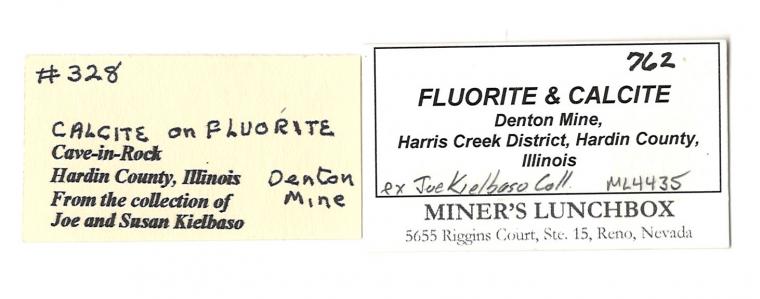 #328
CALCITE on FLUORITE
Cave-in-Rock
Hardin County, Illinois Denton
From the collection of Mine
Joe and Susan Kielbaso
762
FLUORITE & CALCITE
Denton Mine,
Harris Creek District, Hardin County,
Illinois
ex Joe Kielbaso Coll. ML4435
MINER'S LUNCHBOX
5655 Riggins Court, Ste. 15, Reno, Nevada